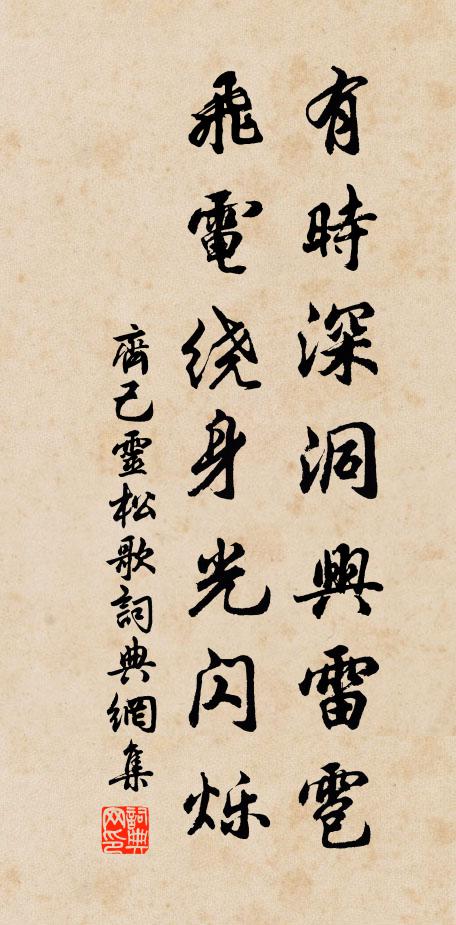 有時深洞興雷雹
飛電绕身光闪烁
齊己靈松歌詞典網集
詞典网印